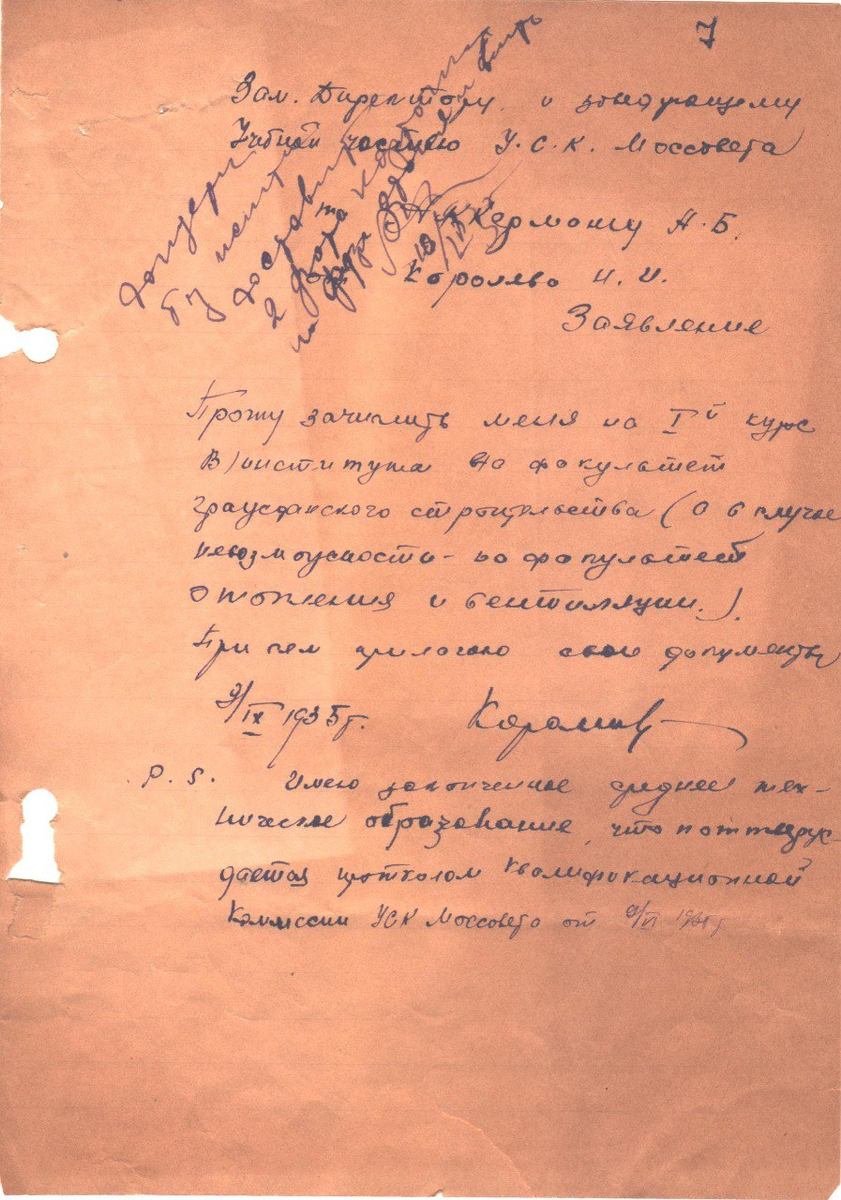 7
Зам. Директору и заведующему
Учебной частью У.С.К. Моссовета
Аккерману А.Б.
от Королева И.И.
Заявление
Прошу зачислить меня на I й курс
В) института на факультет
гражданского строительства (а в случае
невозможности - на факультет
отопления и вентиляции.).
При чем прилагаю свои документы
9/IX 1935г.
P.S. Имею законченное среднее тех-
ническое образование, что потверж-
дается протколом квалификационной
комиссии УСК Моссовета от 9/VI
без испыт
доставить
2 фото карточки